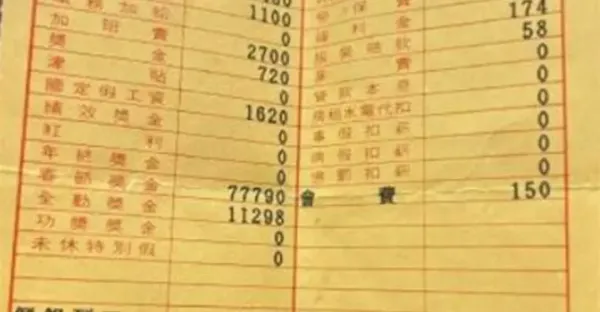 務加給 1100 保費 174
加班費 0 福利金 58
獎金 2700 0
津貼 720 費 0
國定假工資 0 0
績效獎金 1620 水電代扣 0
紅利 0 事假扣薪 0
年終獎金 0 病假扣薪 0
春節獎金 0 扣薪 0
全勤獎金 77790 會費 150
功獎獎金 11298
未休特別假 0
0